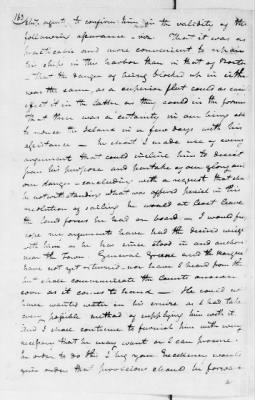 163
agent, to confirm him in the validity of the
following assurance – viz. That it was as
practicable and more convenient to retain
his ships in the harbor than in that of Boston
– That the danger of being blocked up in either
was the same, as a superior fleet could as easily
effect it in the latter as they could in the former
That there was a certainty in our being able
to reduce the Island in a few days with his
assistance – In short I made use of every
argument that could incline him to desist
from his purpose and partake of our glory and
our danger – concluding with a request that should
he notwithstanding what was offered persist in this
resolution of sailing he would at least leave
the land forces he had on board – I would
hope my arguments have had the desired weight
with him as he has since stood in and anchored
near the Town. General Greene and the Marquis
have not yet returned – nor have I heard from them
but shall communicate the Counts answer
soon as it comes to hand – He could not
have wanted water in his as I had taken
every possible method of supplying him with it.
And I shall continue to furnish him with every
necessary that he may want or I can procure.
In order to do this I beg your Excellency would
give orders that provisions should be forwarded